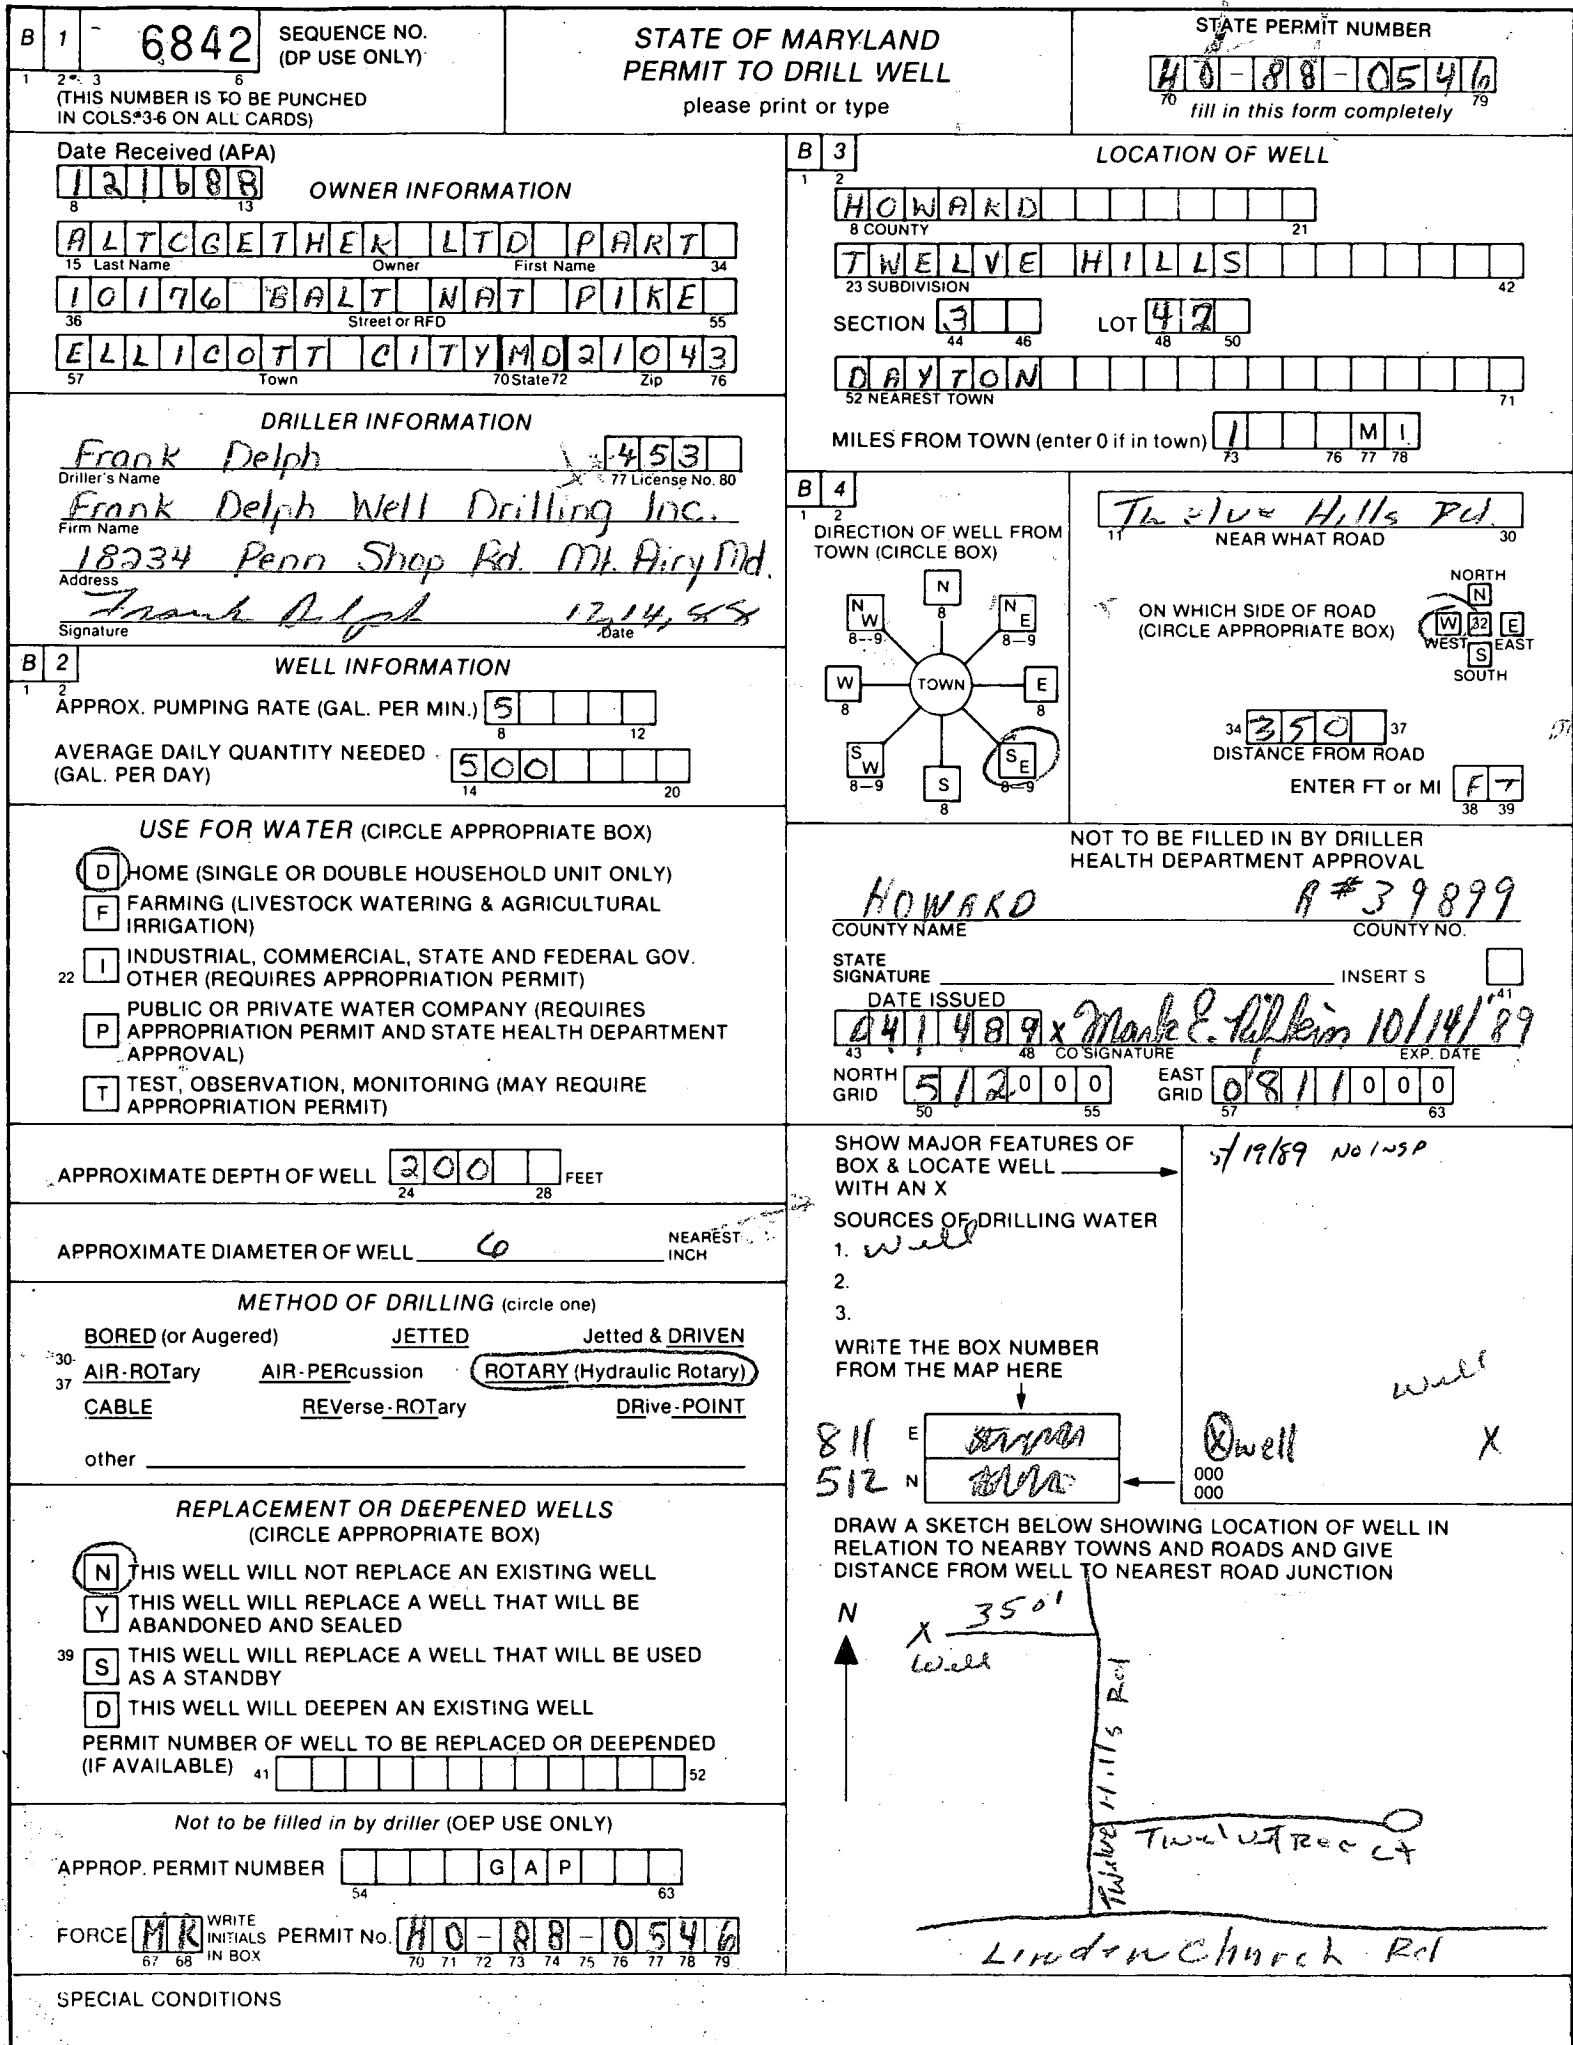 B 1 - 6842 SEQUENCE NO. (DP USE ONLY)
1 2 3 6
(THIS NUMBER IS TO BE PUNCHED
IN COLS. 3-6 ON ALL CARDS)
STATE OF MARYLAND
PERMIT TO DRILL WELL
please print or type
STATE PERMIT NUMBER
HO-88-0546
70 79
fill in this form completely
Date Received (APA)
121688
8 13
OWNER INFORMATION
ALTCGETHER LTD PART
15 Last Name Owner First Name 34
10176 BALT NAT PIKE
36 Street or RFD 55
ELLICOTT CITY MD 21043
57 Town 70 State 72 Zip 76
DRILLER INFORMATION
Frank Delph 453
Driller's Name 77 License No. 80
Frank Delph Well Drilling Inc.
Firm Name
18234 Penn Shop Rd. Mt. Airy Md.
Address
Frank Delph 12,14,88
Signature Date
B 2 WELL INFORMATION
1 2
APPROX. PUMPING RATE (GAL. PER MIN.) 5
8 12
AVERAGE DAILY QUANTITY NEEDED
(GAL. PER DAY) 500
14 20
USE FOR WATER (CIRCLE APPROPRIATE BOX)
D HOME (SINGLE OR DOUBLE HOUSEHOLD UNIT ONLY)
F FARMING (LIVESTOCK WATERING & AGRICULTURAL
IRRIGATION)
22 I INDUSTRIAL, COMMERCIAL, STATE AND FEDERAL GOV.
OTHER (REQUIRES APPROPRIATION PERMIT)
P PUBLIC OR PRIVATE WATER COMPANY (REQUIRES
APPROPRIATION PERMIT AND STATE HEALTH DEPARTMENT
APPROVAL)
T TEST, OBSERVATION, MONITORING (MAY REQUIRE
APPROPRIATION PERMIT)
APPROXIMATE DEPTH OF WELL 200 FEET
24 28
APPROXIMATE DIAMETER OF WELL 6 NEAREST INCH
METHOD OF DRILLING (circle one)
BORED (or Augered) JETTED Jetted & DRIVEN
30-37 AIR-ROTary AIR-PERcussion ROTARY (Hydraulic Rotary)
CABLE REVerse-ROTary DRive-POINT
other
REPLACEMENT OR DEEPENED WELLS
(CIRCLE APPROPRIATE BOX)
N THIS WELL WILL NOT REPLACE AN EXISTING WELL
Y THIS WELL WILL REPLACE A WELL THAT WILL BE
ABANDONED AND SEALED
39 S THIS WELL WILL REPLACE A WELL THAT WILL BE USED
AS A STANDBY
D THIS WELL WILL DEEPEN AN EXISTING WELL
PERMIT NUMBER OF WELL TO BE REPLACED OR DEEPENDED
(IF AVAILABLE) 41 52
Not to be filled in by driller (OEP USE ONLY)
APPROP. PERMIT NUMBER GAP
54 63
FORCE MR WRITE INITIALS IN BOX PERMIT No. HO-88-0546
67 68 70 71 72 73 74 75 76 77 78 79
SPECIAL CONDITIONS
B 3 LOCATION OF WELL
1 2
HOWARD
8 COUNTY 21
TWELVE HILLS
23 SUBDIVISION 42
SECTION 3 LOT 42
44 46 48 50
DAYTON
52 NEAREST TOWN 71
MILES FROM TOWN (enter 0 if in town) 1 MI
73 76 77 78
B 4
1 2
DIRECTION OF WELL FROM
TOWN (CIRCLE BOX)
N
8
NW NE
8-9 8-9
W TOWN E
8 8
SW SE
8-9 8-9
S
8
Twelve Hills Rd.
11 NEAR WHAT ROAD 30
ON WHICH SIDE OF ROAD
(CIRCLE APPROPRIATE BOX)
NORTH
N
W 32 E
WEST EAST
S
SOUTH
34 350 37
DISTANCE FROM ROAD
ENTER FT or MI FT
38 39
NOT TO BE FILLED IN BY DRILLER
HEALTH DEPARTMENT APPROVAL
HOWARD A#39899
COUNTY NAME COUNTY NO.
STATE
SIGNATURE INSERT S
41
DATE ISSUED
041489 x Mark E. 10/14/89
43 48 CO SIGNATURE EXP. DATE
NORTH GRID 512000 EAST GRID 0811000
50 55 57 63
SHOW MAJOR FEATURES OF
BOX & LOCATE WELL
WITH AN X
SOURCES OF DRILLING WATER
1. Well
2.
3.
WRITE THE BOX NUMBER
FROM THE MAP HERE
811 E
512 N
/19/89 NO INSP
Well
X well X
000
000
DRAW A SKETCH BELOW SHOWING LOCATION OF WELL IN
RELATION TO NEARBY TOWNS AND ROADS AND GIVE
DISTANCE FROM WELL TO NEAREST ROAD JUNCTION
N
X 350'
Well
Twelve Hills Rd
Ct
Linden Church Rd